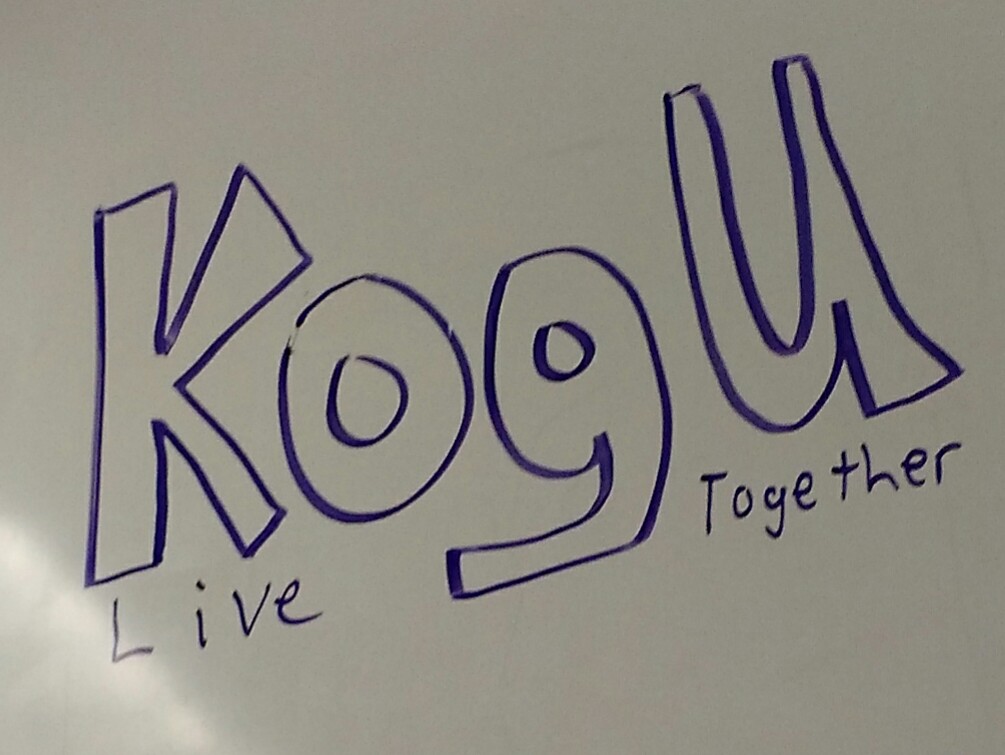 Kogu
Live Together